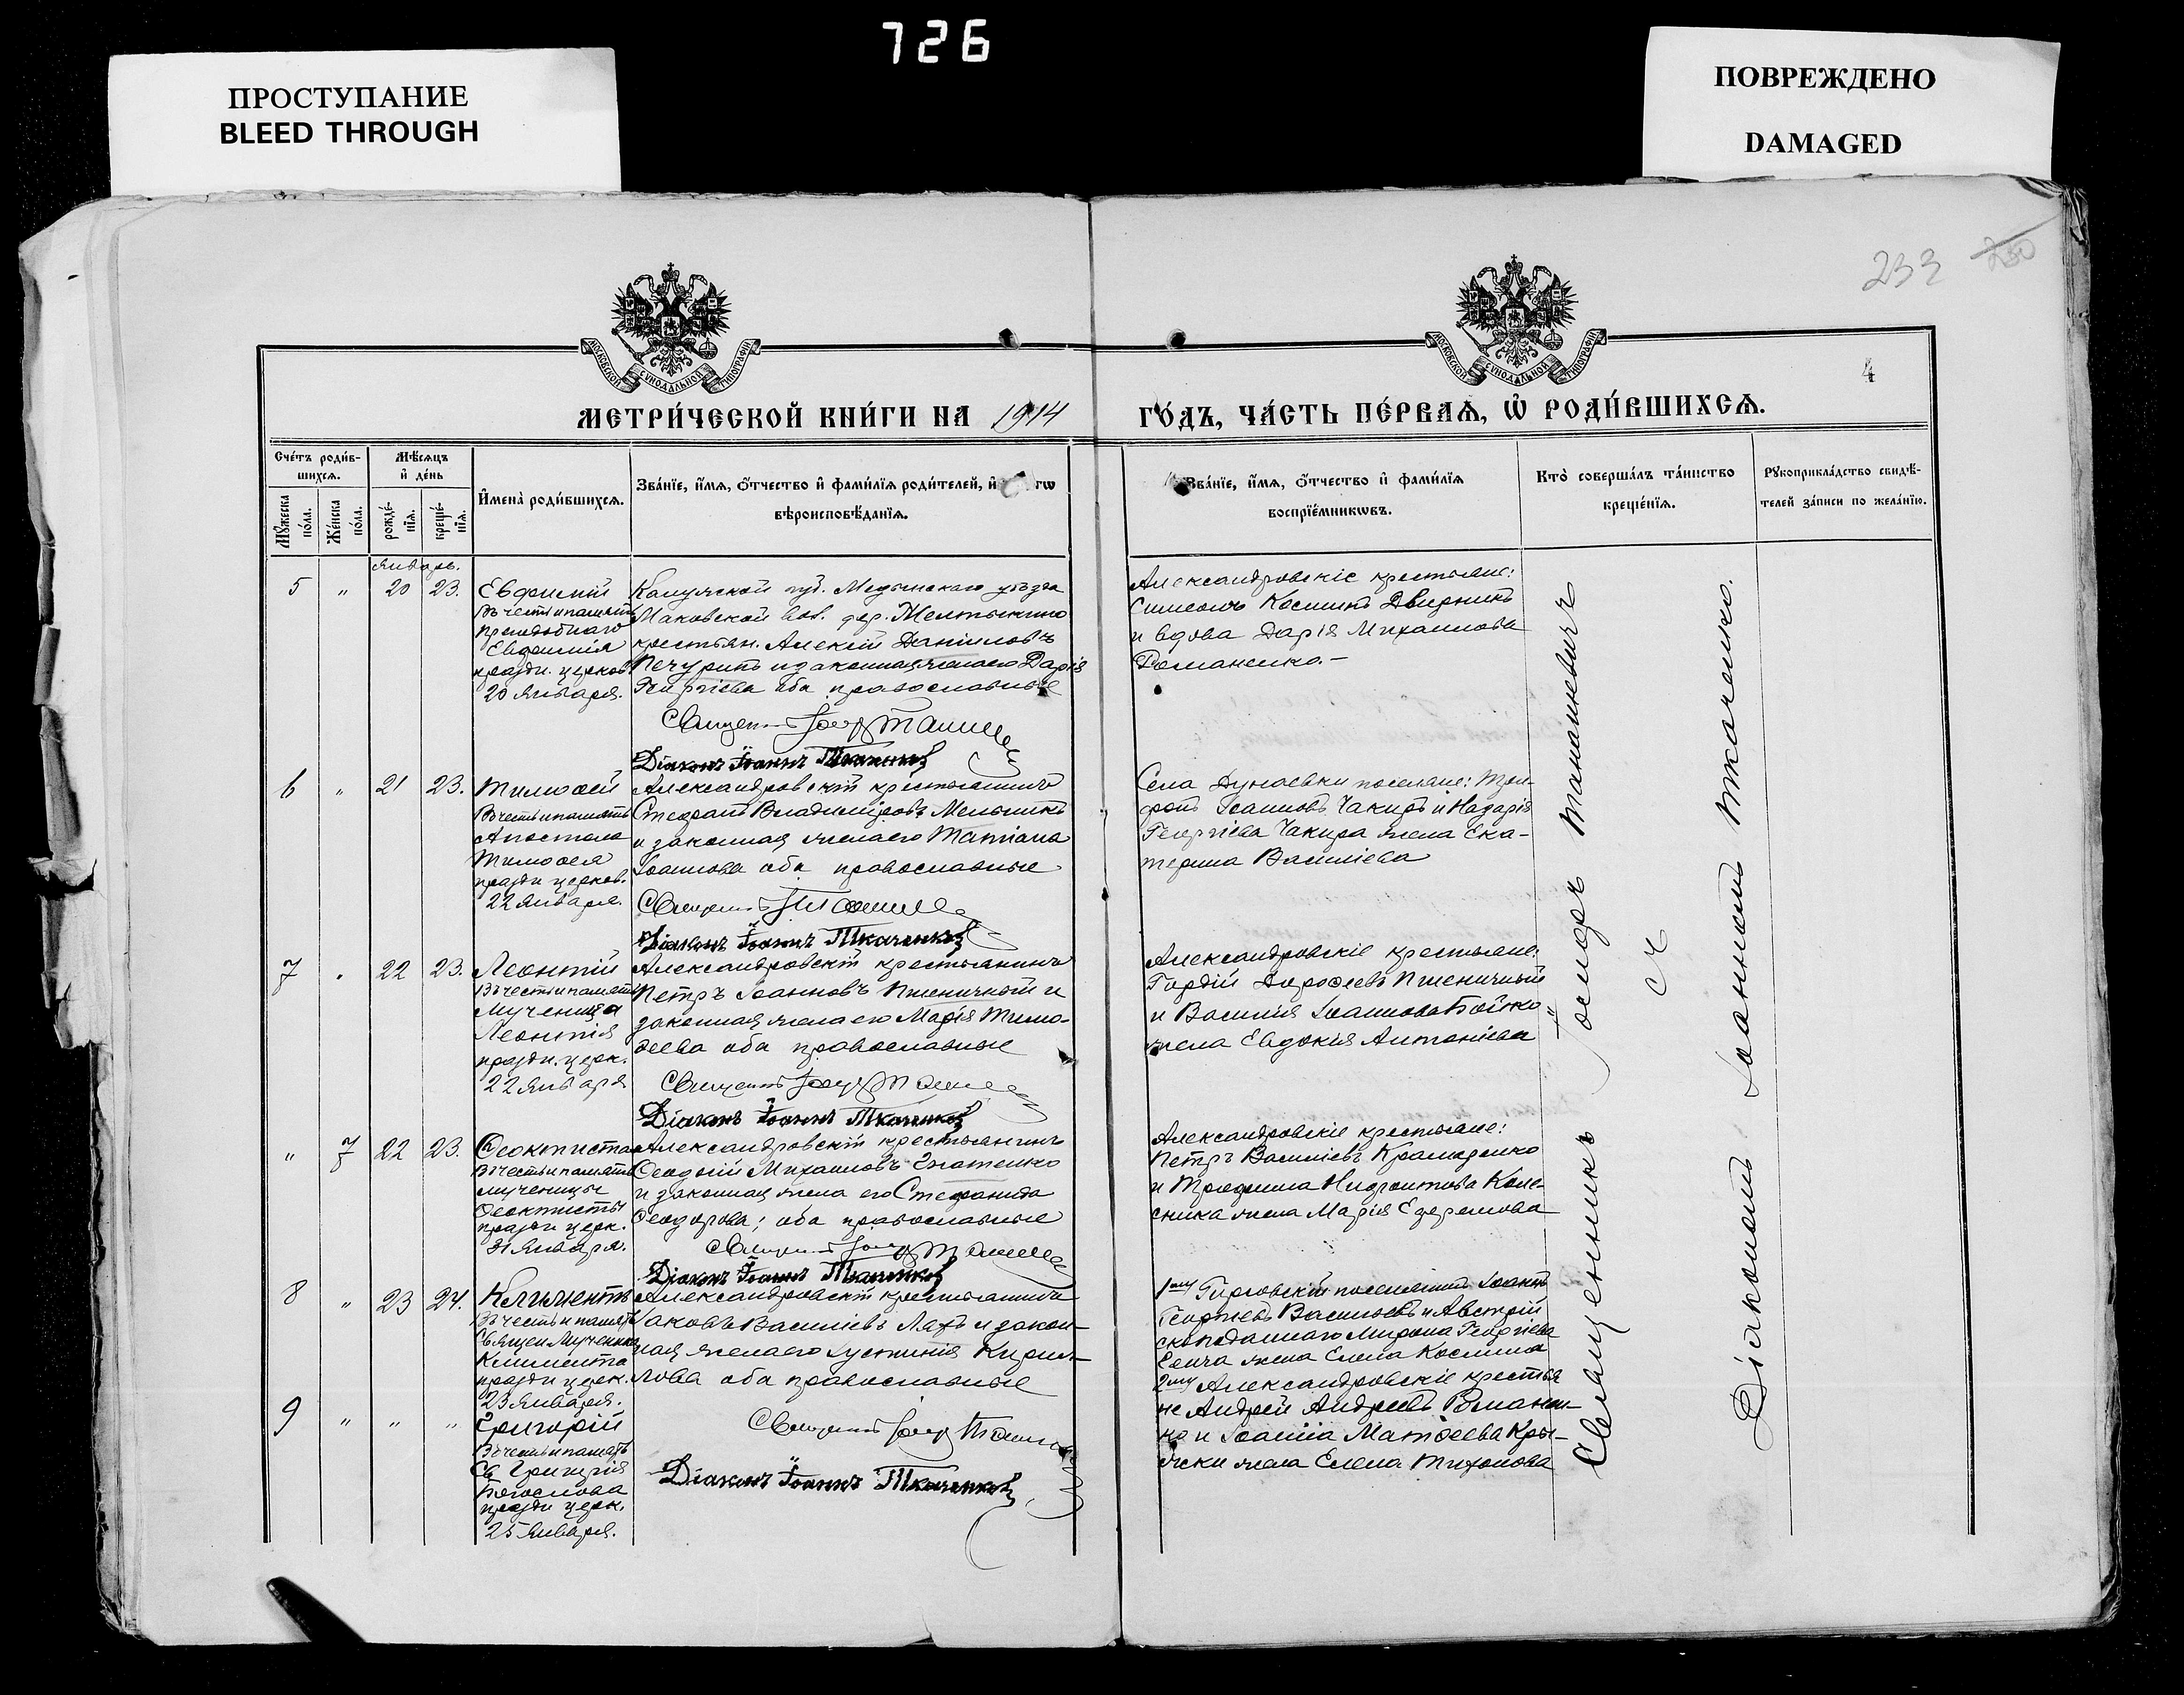 726
ПРОСТУПАНИЕ
BLEED THROUGH
ПОВРЕЖДЕНО
DAMAGED
233
230
МОСКОВСКОЙ СѴНОДАЛЬНОЙ ТИПОГРАФІИ
МОСКОВСКОЙ СѴНОДАЛЬНОЙ ТИПОГРАФІИ
4
МЕТРИ́ЧЕСКОЙ КНИ́ГИ НА 1914
ГО́ДЪ, ЧА́СТЬ ПЕ́РВАѦ, Ѡ҆ РОДИ́ВШИХСѦ.
Сче́тъ роди́в-
шихсѧ.
Мꙋ́жеска по́ла.
Же́нска по́ла.
Мѣ́сѧцъ
и҆ де́нь
рожде́-
нїѧ.
креще́-
нїѧ.
И҆мена̀ роди́вшихсѧ.
Зва́нїе, и҆́мѧ, ѻ҆́тчество и҆ фами́лїѧ роди́телей, и҆
вѣроисповѣ́данїѧ.
Зва́нїе, и҆́мѧ, ѻ҆́тчество и҆ фами́лїѧ
воспрїе́мникѡвъ.
Кто̀ соверша́лъ та́инство
креще́нїѧ.
Рꙋкоприкла́дство свидѣ́-
телей за́писи по жела́нїю.
Январь.
5 " 20 23.
Евфимій
Въ честь и память
преподобнаго
Евфимія
праздн. церков.
20 Января.
Калужской губ. Медынскаго уѣзда
Маковской вол. дер. Желтыкино
крестьян. Алексій Даніиловъ
Печуринъ и законная жена его Дарія
Георгіева оба православные
Священникъ
Діаконъ Іоаннъ Ткаченко
Александровскіе крестьяне:
Симеонъ Косминъ Дверникъ
и вдова Дарія Михаилова
Романенко.-
6 " 21 23.
Тимоѳей
Въ честь и память
Апостола
Тимоѳея
праздн церков.
22 Января.
Александровскій крестьянинъ
Стефанъ Владиміровъ Мельникъ
и законная жена его Татіана
Іоаннова оба православные
Священникъ
Діаконъ Іоаннъ Ткаченко
Села Дунаевки поселяне: Три-
фонъ Іоанновъ Чакиръ и Назарія
Георгіева Чакира жена Ека-
терина Василіева
7 " 22 23.
Леонтій
Въ честь и память
Мученика
Леонтія
праздн. церк.
22 Января
Александровскій крестьянинъ
Петръ Іоанновъ Пшеничный и
законная жена его Марія Тимо-
ѳеева оба православные
Священникъ
Діаконъ Іоаннъ Ткаченко
Александровскіе крестьяне:
Гордій Дороѳеевъ Пшеничный
и Василія Іоаннова Бойко
жена Евдокія Антоніева
" 7 22 23.
Ѳеоктиста
Въ честь и память
мученицы
Ѳеоктисты
праздн церк.
31 Января.
Александровскій крестьянинъ
Ѳеодосій Михаиловъ Игнатенко
и законная жена его Стефанида
Ѳеодорова; оба православные
Священникъ
Діаконъ Іоаннъ Ткаченко
Александровскіе крестьяне:
Петръ Василіевъ Крамаренко
и Трофима Ксенофонтова Коле-
сника жена Марія Ефремова
8 " 23 24.
Климентъ
Въ честь и память
Священ Мученика
Климента
праздн церк.
23 Января.
Александровскій крестьянинъ
Іаковъ Василіевъ Ляхъ и закон-
ная жена его Іустинія Кирил-
лова оба православные
1му Гировскій поселянинъ Іоаннъ
Георгіевъ Васильевъ и Австрій
скоподданнаго Мирона Георгіева
жена Елена Космина
9 " " "
Григорій
Въ честь и память
Св Григорія
Богослова
праздн церк.
25 Января.
Священникъ
Діаконъ Іоаннъ Ткаченко
2му Александровскіе крестья
не Андрей Андреевъ Романен-
ко и Іоанна Матѳеева Кры-
жски жена Елена Тихонова
Священникъ Іосифъ Танашевичъ
съ
Діакономъ Іоанномъ Ткаченко.